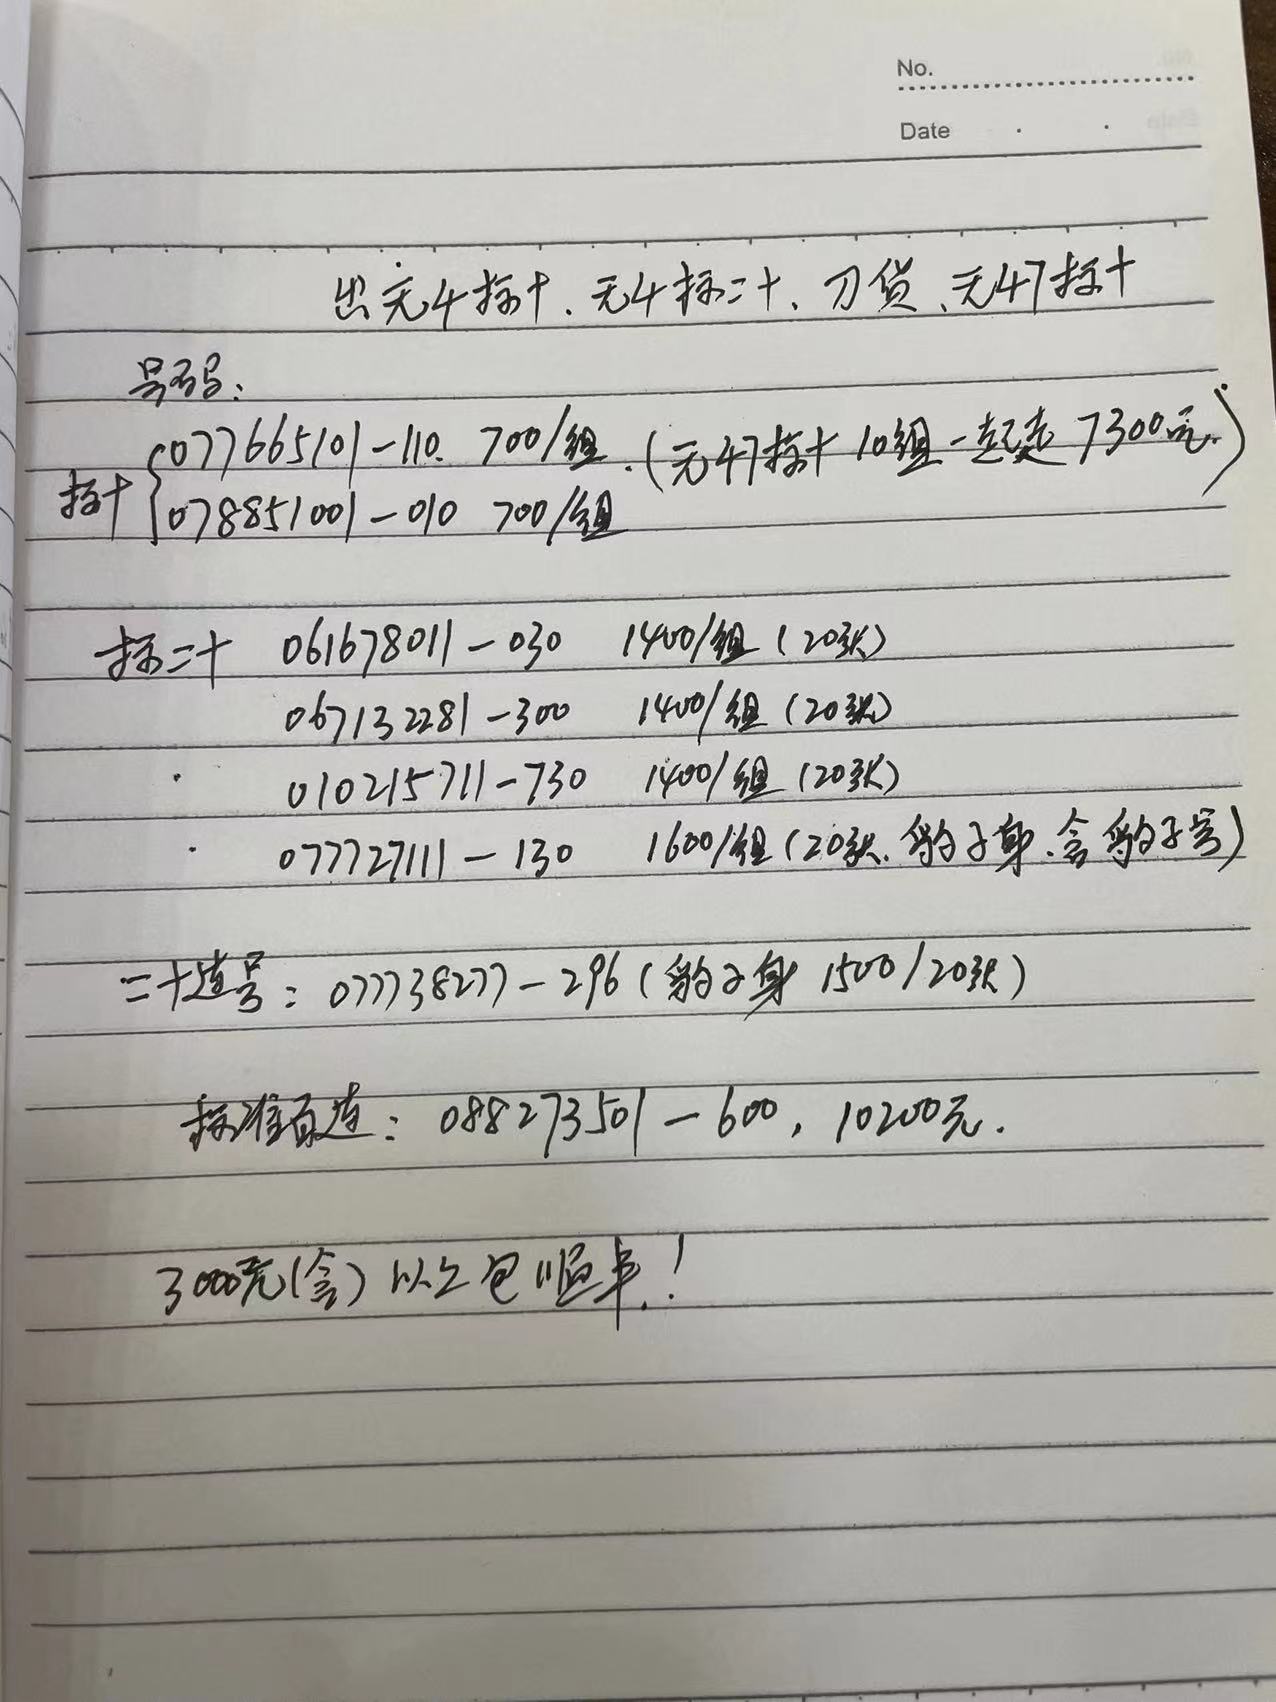 No.
Date
出无4标十、无4标二十、刀货、无47标十
号码:
077665101-110. 700/组.(无47标十10组一起走7300元.)
标十
078851001-010 700/组
标二十 061678011-030 1400/组(20张)
067132281-300 1400/组(20张)
010215711-730 1400/组(20张)
077727111-130 1600/组(20张.豹子身.含豹子号)
二十连号:077738277-296(豹子身1500/20张)
标准百连:088273501-600,10200元.
3000元(含)以上包顺丰.!